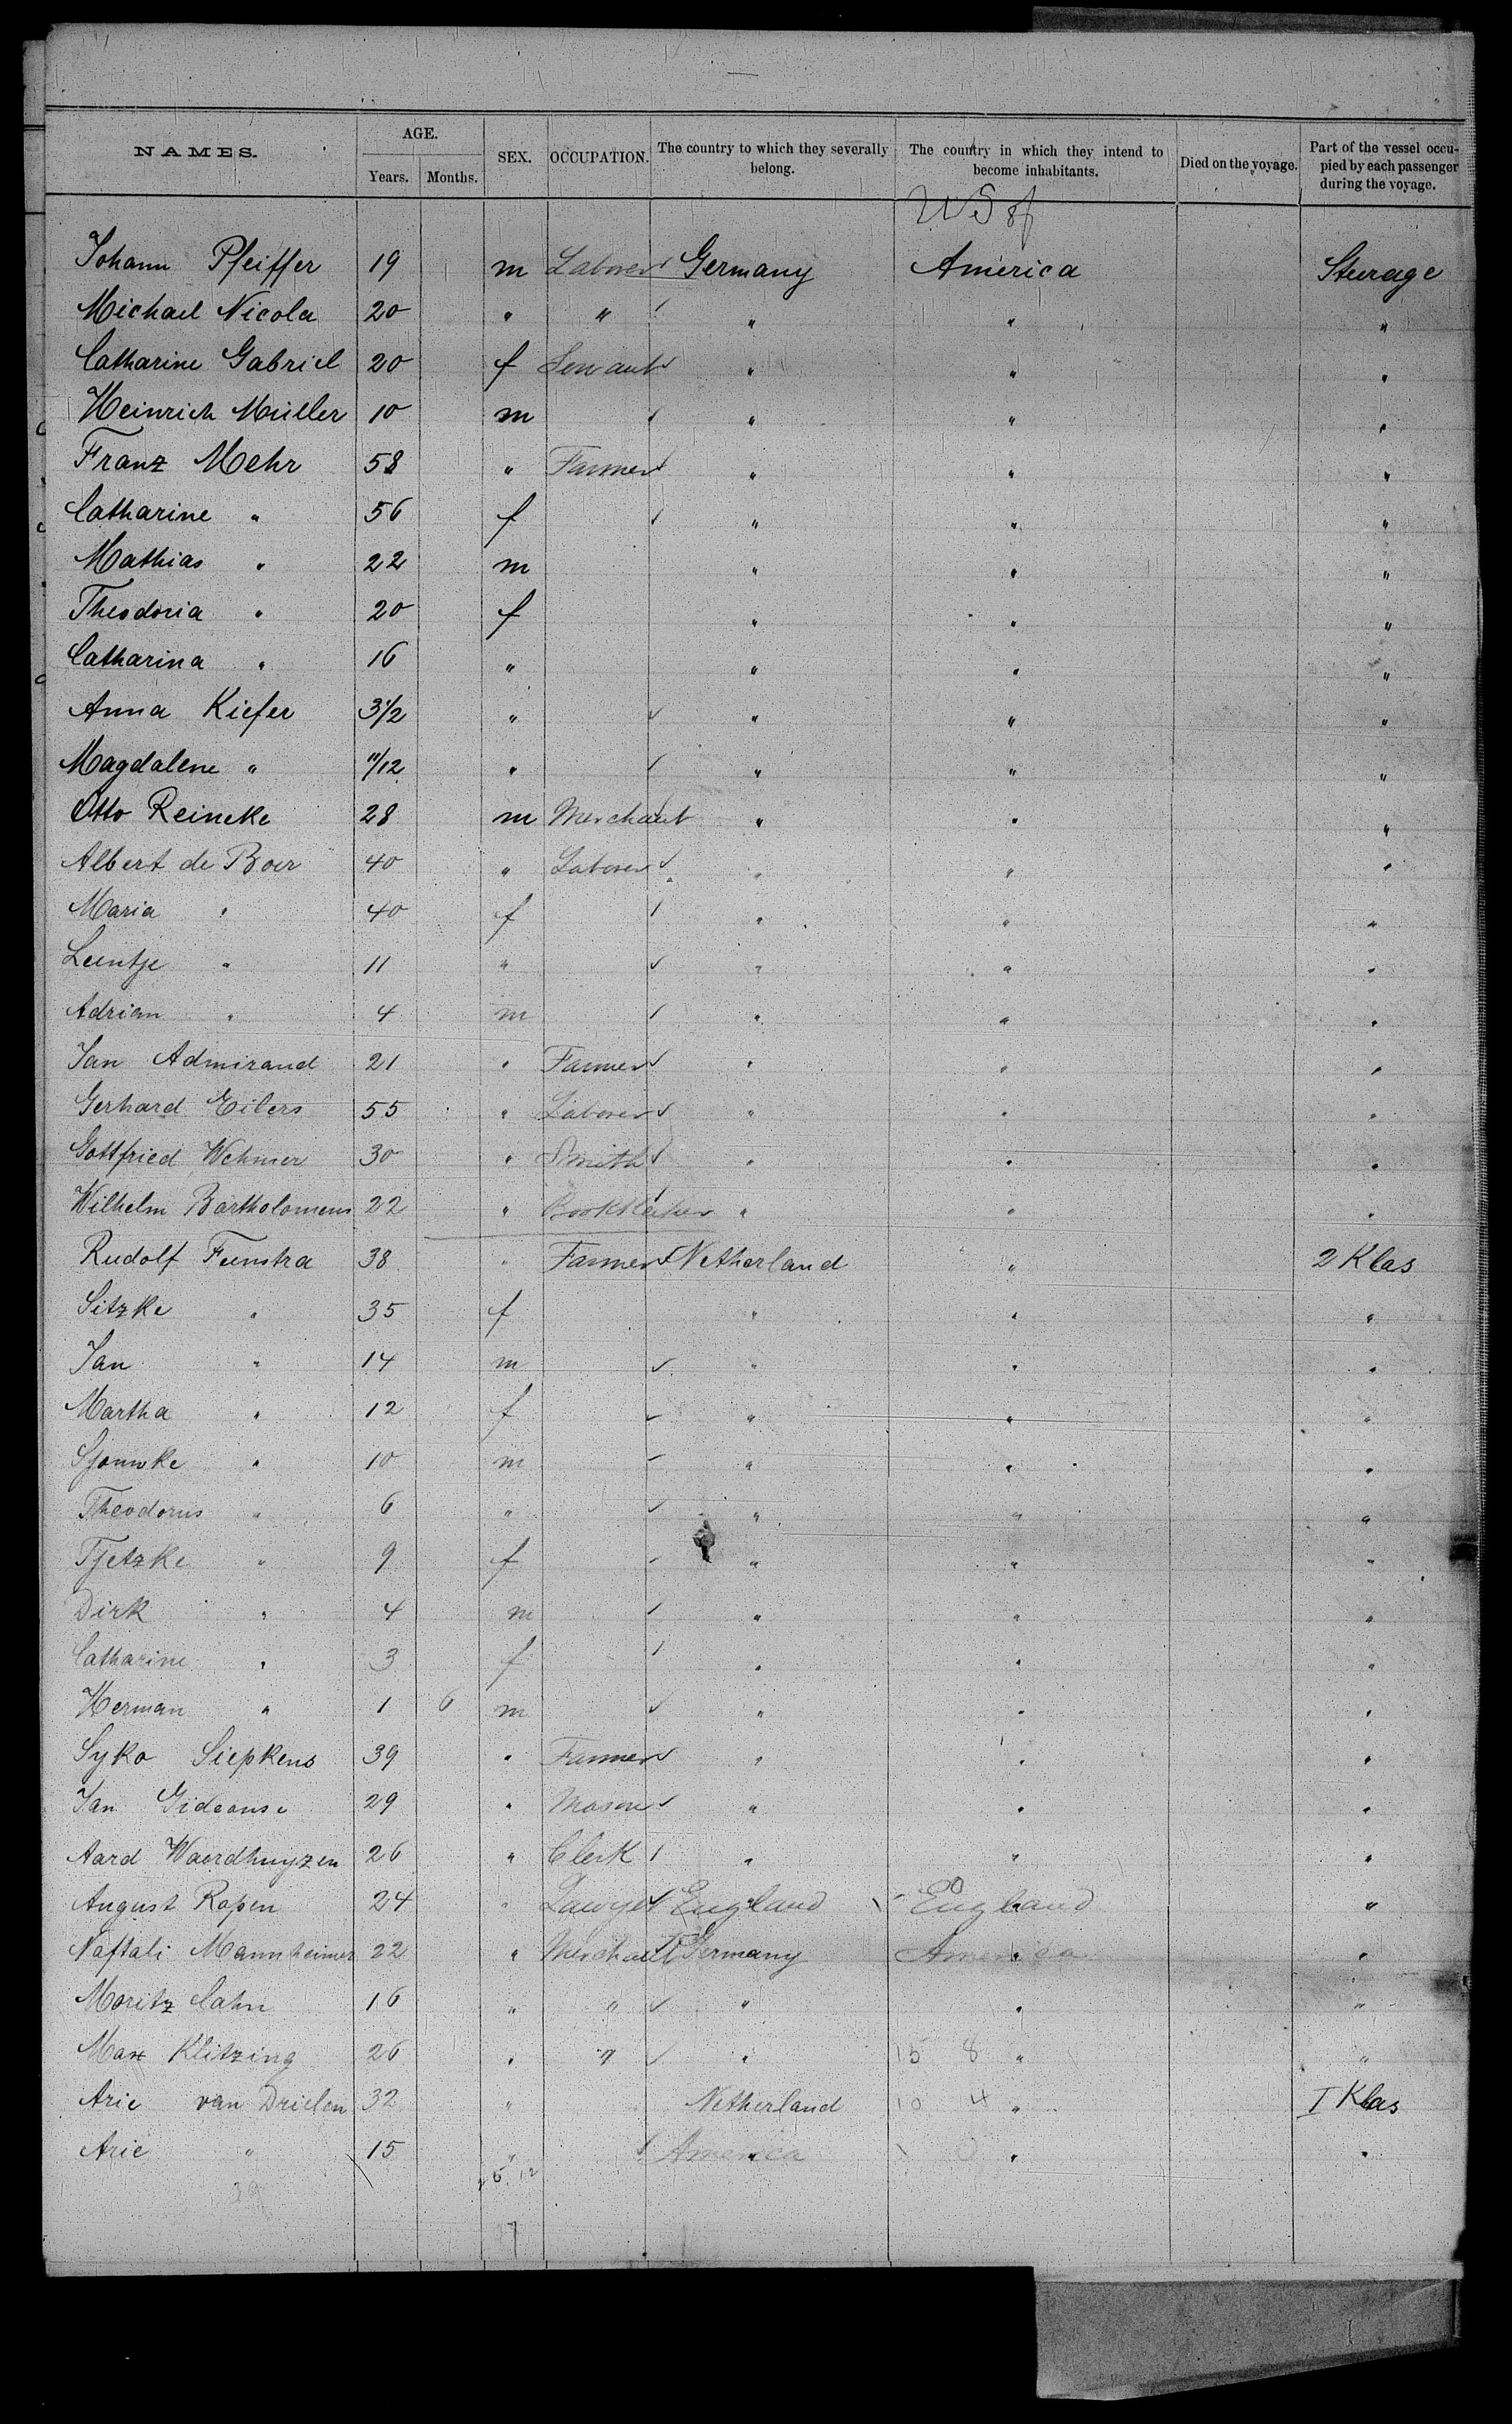 NAMES. AGE. Years. Months. SEX. OCCUPATION. The country to which they severally belong. The country in which they intend to become inhabitants. Died on the voyage. Part of the vessel occupied by each passenger during the voyage.
US of
Johann Pfeiffer 19 m Laborer Germany America Steerage
Michael Nicola 20 " " " " "
Catharine Gabriel 20 f Servant " " "
Heinrich Müller 10 m " " "
Franz Mehr 58 " Farmer " " "
Catharine " 56 f " " "
Mathias " 22 m " " "
Theodoria " 20 f " " "
Catharina " 16 " " " "
Anna Kiefer 3 1/2 " " " "
Magdalene " 11/12 " " " "
Otto Reineke 28 m Merchant " " "
Albert de Boer 40 " Laborer " " "
Maria " 40 f " " "
Leentje " 11 " " " "
Adrian " 4 m " " "
Jan Admiraud 21 " Farmer " " "
Gerhard Eilers 55 " Laborer " " "
Gottfried Wehmer 30 " Smith " " "
Wilhelm Bartholomeus 22 " Bookkeeper " " "
Rudolf Feenstra 38 " Farmer Netherland " 2 Klas
Sitzke " 35 f " " "
Jan " 14 m " " "
Martha " 12 f " " "
Sjouwke " 10 m " " "
Theodorus " 6 " " " "
Tjetzke " 9 f " " "
Dirk " 4 m " " "
Catharine " 3 f " " "
Herman " 1 6 m " " "
Syko Siepkens 39 " Farmer " " "
Jan Gideonse 29 " Mason " " "
Aard Waardhuyzen 26 " Clerk " " "
August Ropen 24 " Lawyer England England "
Naftali Mannheimer 22 " Merchant Germany America "
Moritz Cahn 16 " " " " "
Max Klitzing 26 " " " 15 8 " "
Arie van Drielen 32 " Netherland 10 4 " I Klas
Arie " 15 " America " "